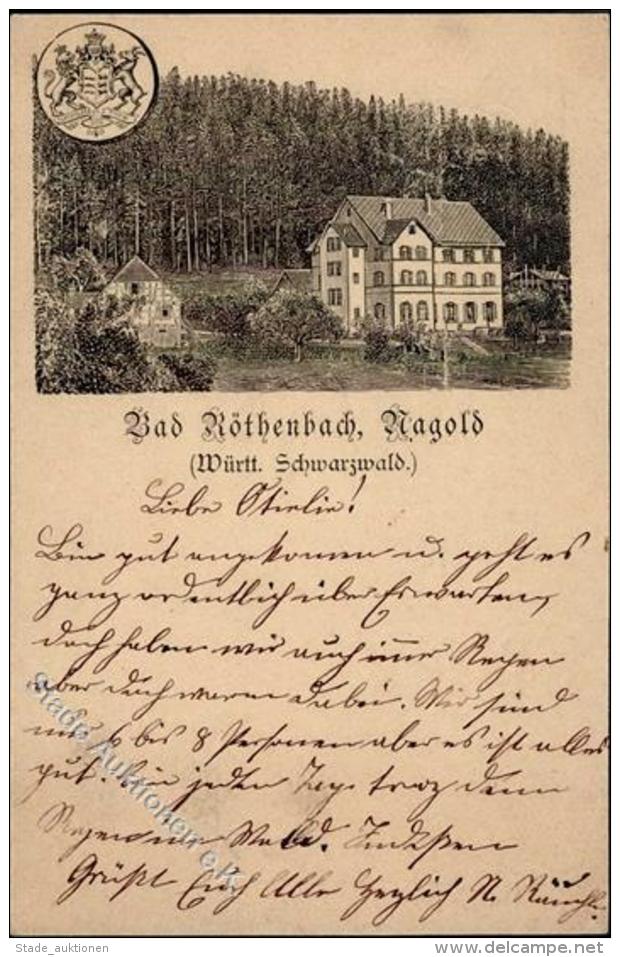 Bad Röthenbach, Nagold
(Württ. Schwarzwald.)
Liebe Otielie!
Bin gut angekomen u. geht es
ganz ordentlich über Erwarten,
doch haben wir auch imer Regen
aber doch warm dabei. Wir sind
nur 6 bis 8 Personen aber es ist alles
gut. Bin jeden Tag troz dem
Regen im Wald. Indeßen
Grüßt Euch Alle Herzlich N.
Stade Auktionen e.K.
Stade_auktionen